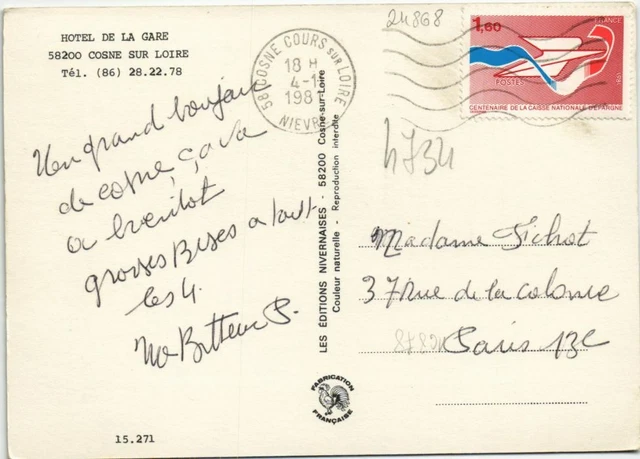 HOTEL DE LA GARE
58200 COSNE SUR LOIRE
Tél. (86) 28.22.78
Un grand bonjour
de cosne, ça va
a bientot
grosses Bises a tout
les 4.
15.271
LES ÉDITIONS NIVERNAISES - 58200 Cosne-sur-Loire
Couleur naturelle - Reproduction interdite
FABRICATION
FRANÇAISE
24868
58 COSNE COURS SUR LOIRE
18 H
4-1
198
NIEVRE
1,60
FRANCE
POSTES
CENTENAIRE DE LA CAISSE NATIONALE D'EPARGNE
4734
Madame Fichot
37 Rue de la Colonie
Paris 13E